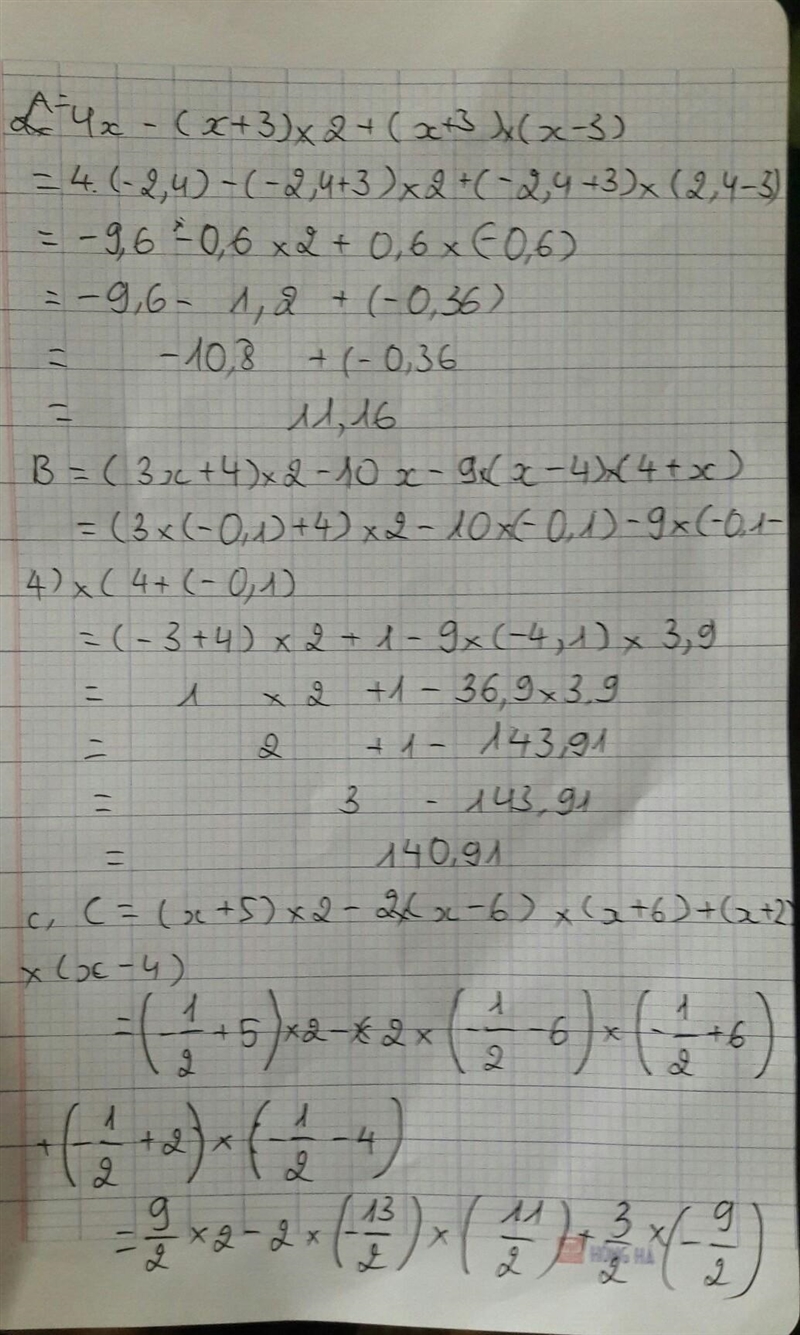 A = 4x - (x+3)×2 + (x+3)×(x-3)
= 4. (-2,4) - (-2,4+3)×2 + (-2,4+3)×(2,4-3)
= -9,6 - 0,6 ×2 + 0,6 × (-0,6)
= -9,6 - 1,2 + (-0,36)
= -10,8 + (-0,36
= 11,16
B = (3x+4)×2 - 10 x - 9×(x-4)×(4+x)
= (3×(-0,1)+4)×2 - 10×(-0,1) - 9×(-0,1-
4)×(4+(-0,1)
= (-3+4) ×2 + 1 - 9×(-4,1) × 3,9
= 1 ×2 +1 - 36,9×3,9
= 2 +1 - 143,91
= 3 - 143,91
= 140,91
c, C = (x+5)×2 - 2×(x-6) ×(x+6)+(x+2)
×(x-4)
= (-1/2 + 5)×2 - 2 × (-1/2 - 6) × (-1/2 + 6)
+ (-1/2 + 2) × (-1/2 - 4)
= 9/2 ×2 - 2 × (-13/2) × (11/2) + 3/2 × (-9/2)
HỒNG HÀ